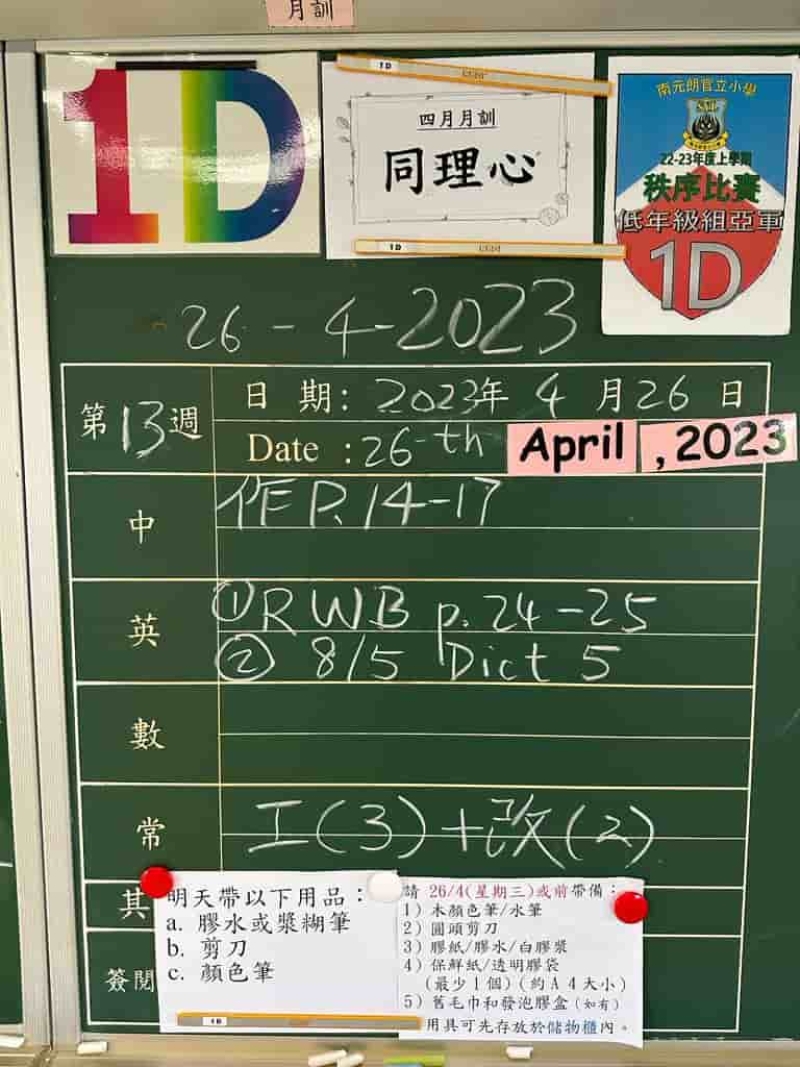 月訓
1D
1D
四月月訓
同理心
1D
南元朗官立小學
22-23年度上學期
秩序比賽
低年級組亞軍
1D
26-4-2023
第13週
日期: 2023年4月26日
Date : 26th April , 2023
中
作 P.14-17
英
① R WB p.24-25
② 8/5 Dict 5
數
常
工(3)+改(2)
其
簽閱
明天帶以下用品：
a. 膠水或漿糊筆
b. 剪刀
c. 顏色筆
1D
請 26/4(星期三)或前帶備：
1) 木顏色筆/水筆
2) 圓頭剪刀
3) 膠紙/膠水/白膠漿
4) 保鮮紙/透明膠袋
(最少1個)(約A4大小)
5) 舊毛巾和發泡膠盒(如有)
用具可先存放於儲物櫃內。